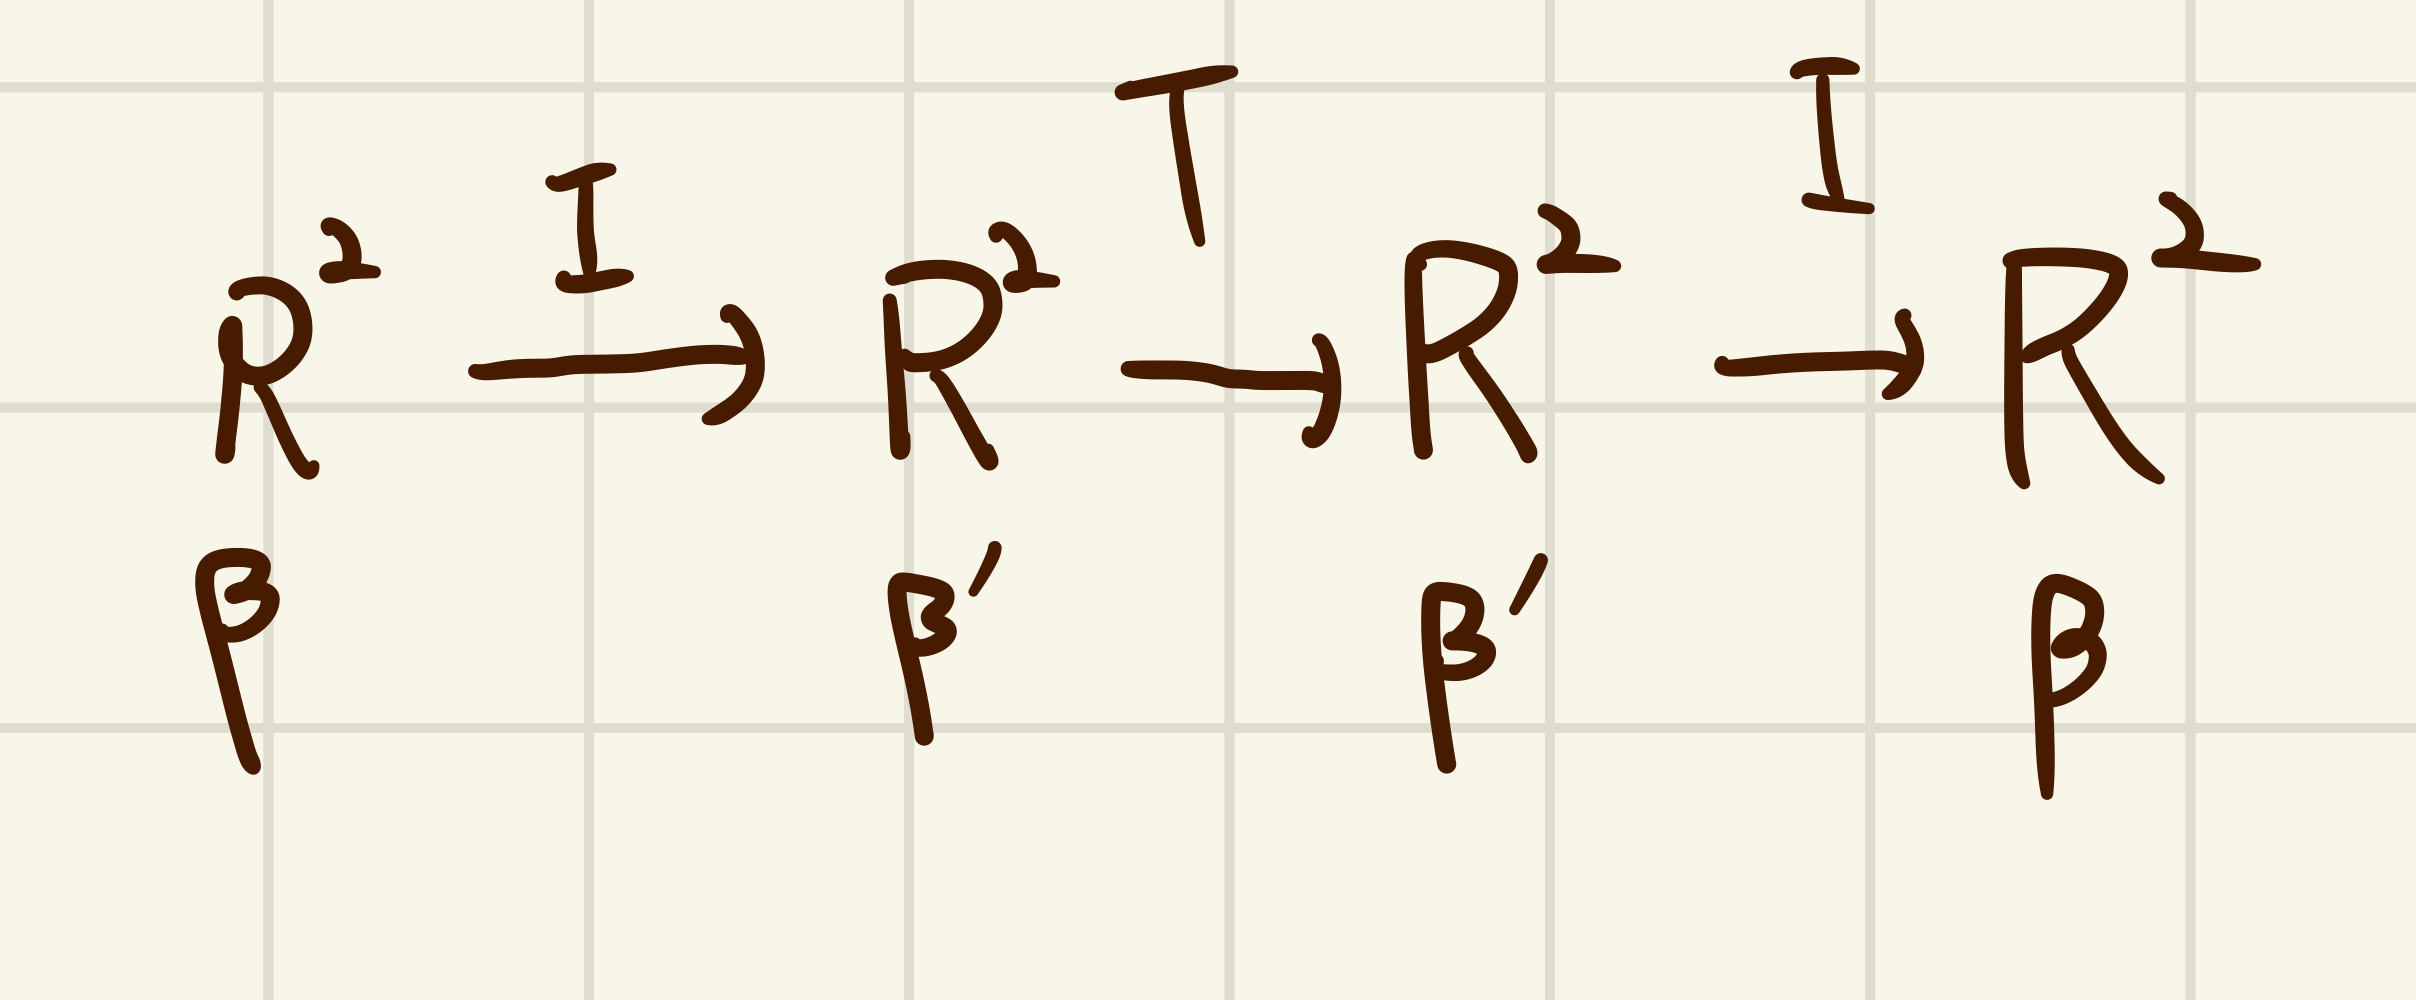 R² I→ R² T→ R² I→ R²
β β′ β′ β